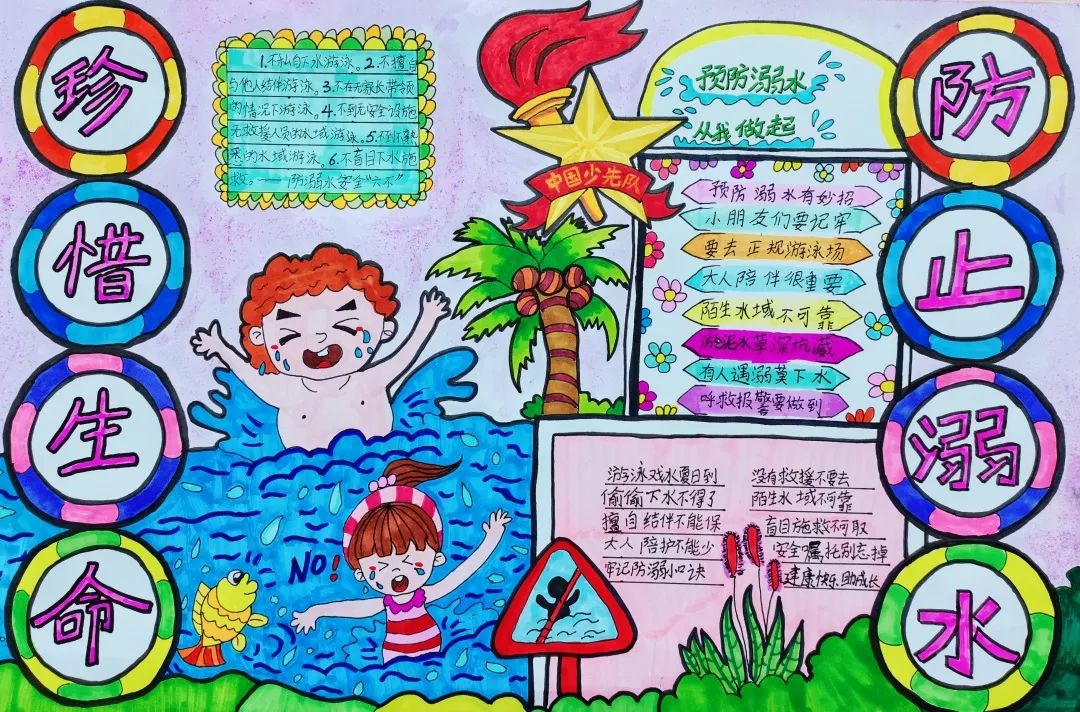 珍
惜
生
命
1.不私自下水游泳。2.不擅自
与他人结伴游泳。3.不在无家长带领
的情况下游泳。4.不到无安全设施
无救援人员的水域游泳。5.不到不熟
悉的水域游泳。6.不盲目下水施
救。——防溺水安全“六不”
中国少先队
预防溺水
从我做起
预防溺水有妙招
小朋友们要记牢
要去正规游泳场
大人陪伴很重要
陌生水域不可靠
淤泥水草深坑藏
有人遇溺莫下水
呼救报警要做到
NO!
游泳戏水夏日到
偷偷下水不得了
擅自结伴不能保
大人陪护不能少
牢记防溺小口诀
没有救援不要去
陌生水域不可靠
盲目施救不可取
安全嘱托别忘掉
建康快乐助成长
防
止
溺
水